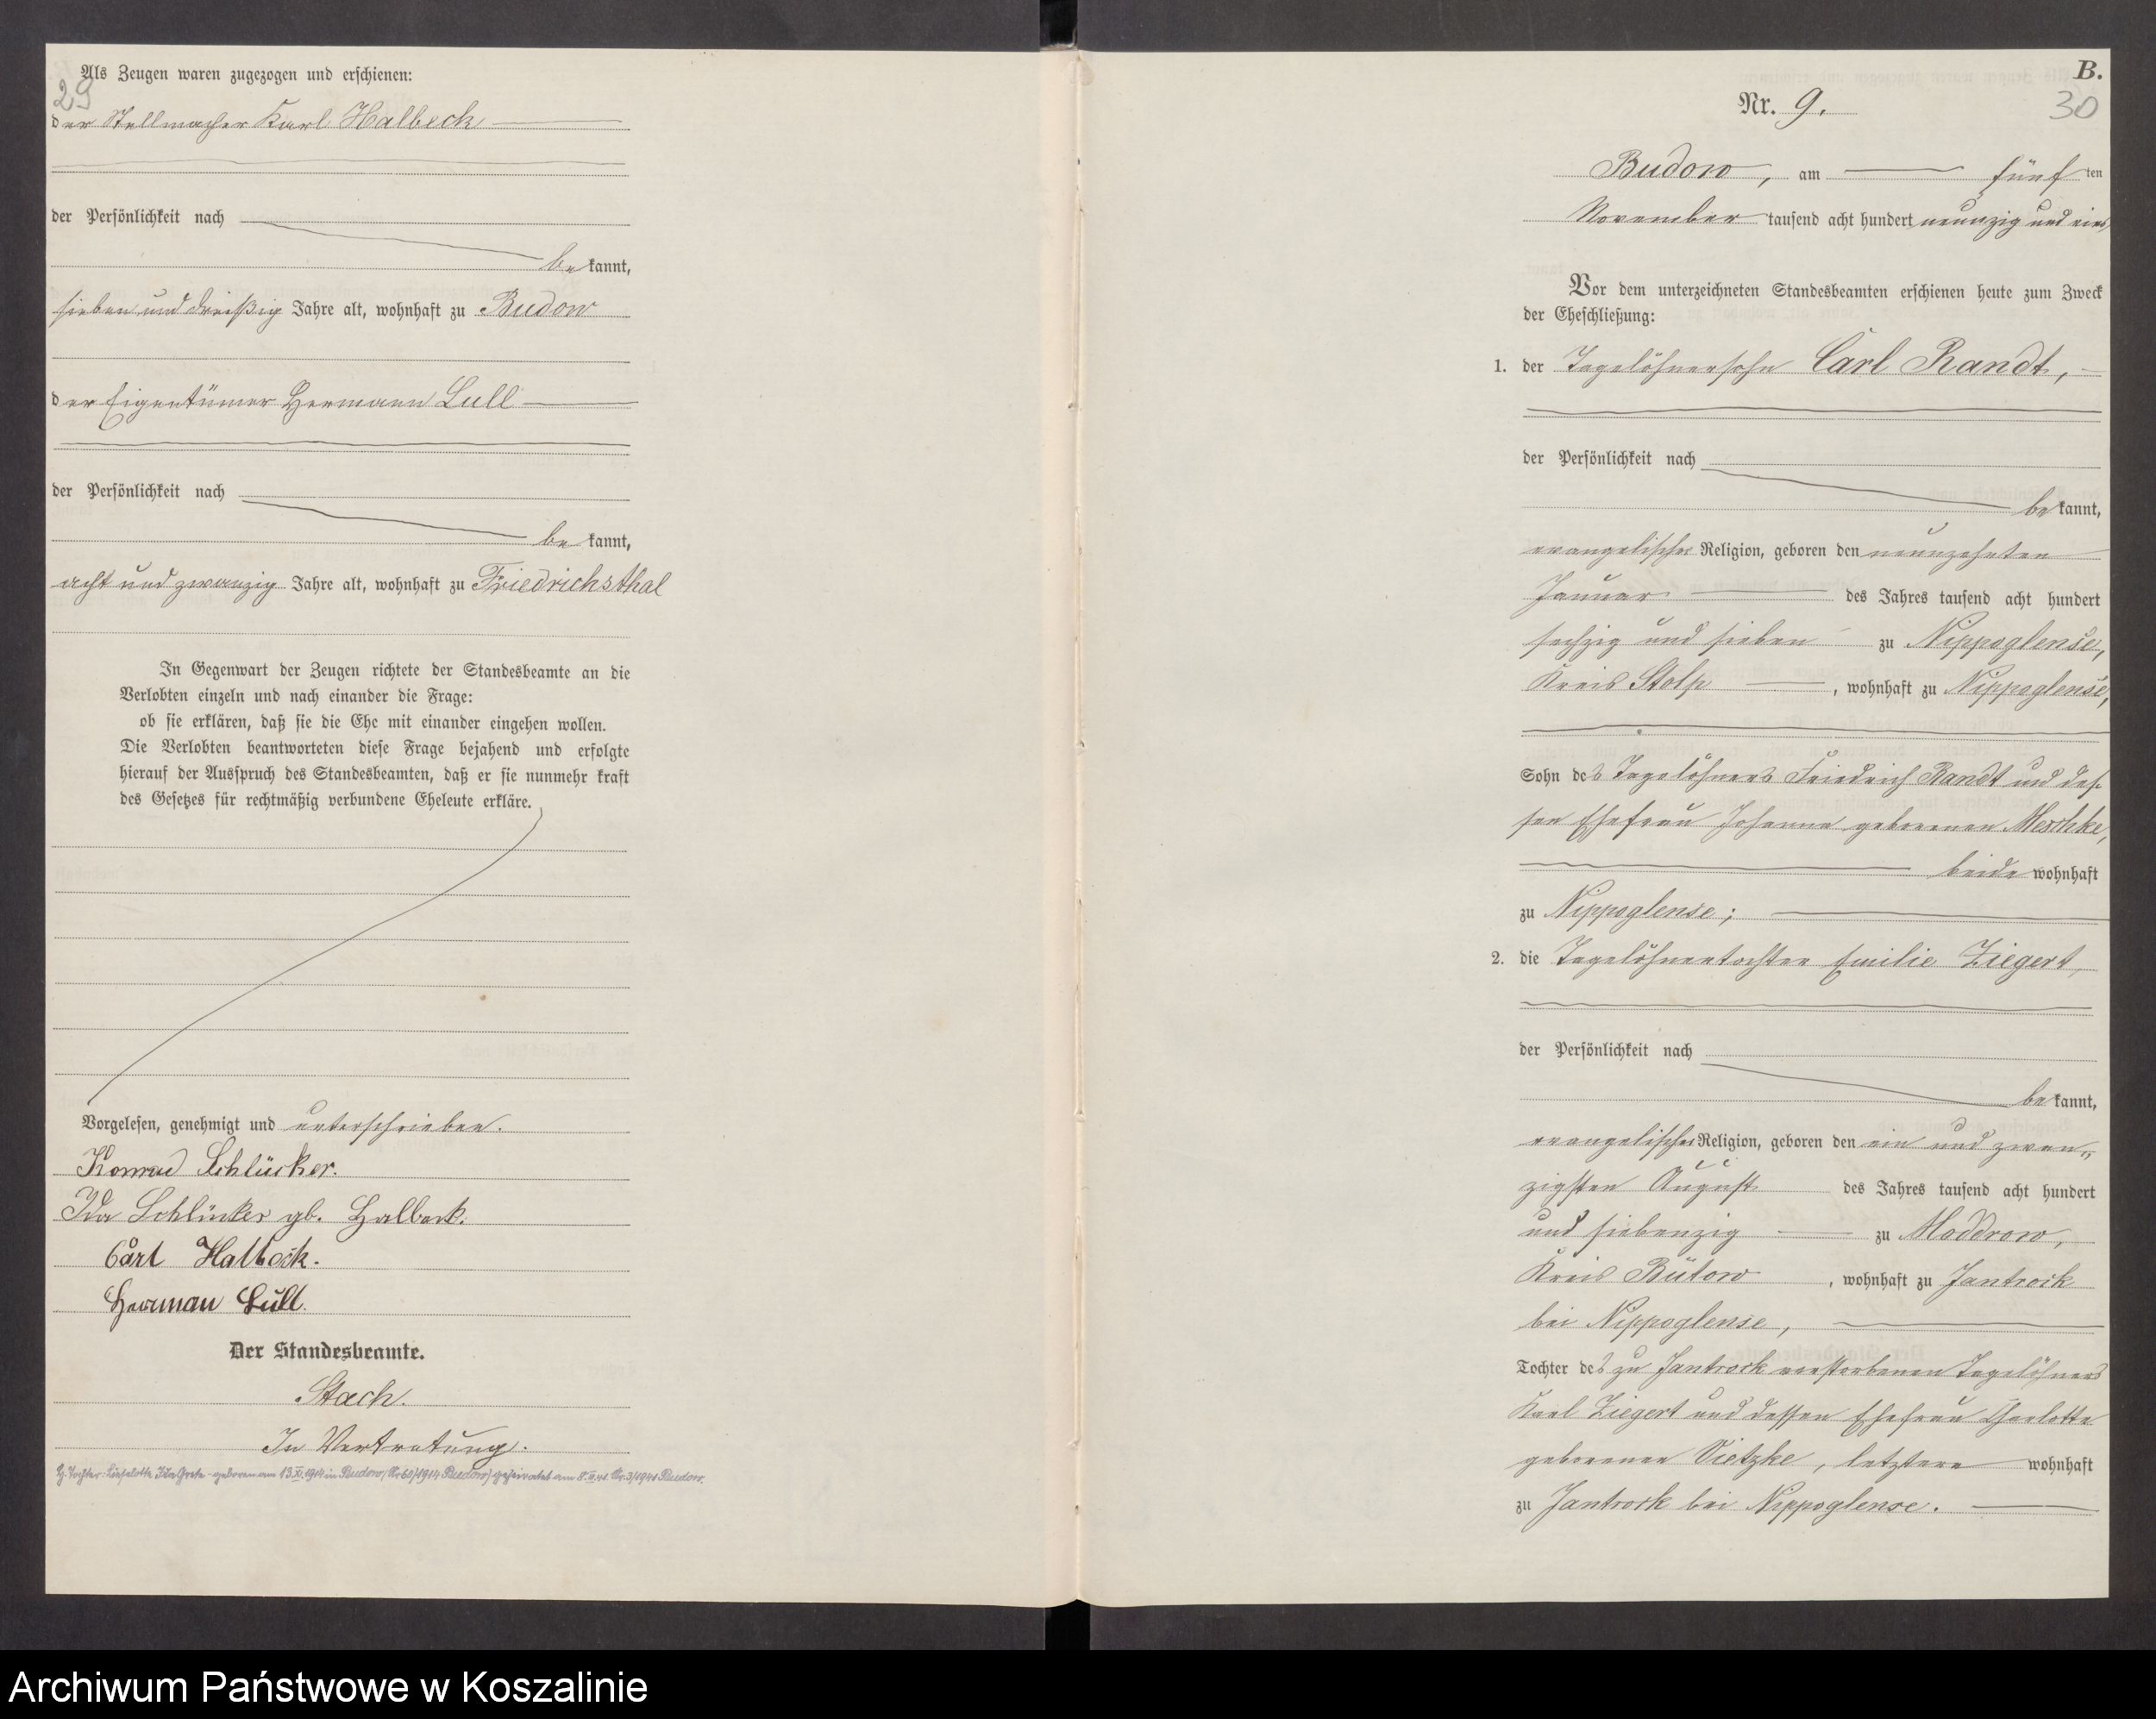 Als Zeugen waren zugezogen und erschienen:
29
der Stellmacher Karl Halbeck
der Persönlichkeit nach
bekannt,
sieben und dreißig Jahre alt, wohnhaft zu Budow
der Eigentümer Hermann Lull
der Persönlichkeit nach
bekannt,
acht und zwanzig Jahre alt, wohnhaft zu Friedrichsthal
In Gegenwart der Zeugen richtete der Standesbeamte an die
Verlobten einzeln und nach einander die Frage:
ob sie erklären, daß sie die Ehe mit einander eingehen wollen.
Die Verlobten beantworteten diese Frage bejahend und erfolgte
hierauf der Ausspruch des Standesbeamten, daß er sie nunmehr kraft
des Gesetzes für rechtmäßig verbundene Eheleute erkläre.
Vorgelesen, genehmigt und unterschrieben.
Konrad Schlücker.
Ida Schlücker gb. Halbeck.
Carl Halbeck.
Herman Lull.
Der Standesbeamte.
Stach.
In Vertretung.
Tochter: Lieselotte Ida Grete geboren am 13.XI.1914 in Budow, (Nr 60/1914 Budow) geheiratet am 8. Nr. 3/1941 Budow.
B.
Nr. 9.
30
Budow, am fünften
November tausend acht hundert neunzig und eins
Vor dem unterzeichneten Standesbeamten erschienen heute zum Zweck
der Eheschließung:
1. der Tagelöhnersohn Carl Randt,
der Persönlichkeit nach
bekannt,
evangelischer Religion, geboren den neunzehnten
Januar des Jahres tausend acht hundert
sechzig und sieben zu Nippoglense,
Kreis Stolp, wohnhaft zu Nippoglense,
Sohn des Tagelöhners Friedrich Randt und des-
sen Ehefrau Johanne geborenen Meschke,
beide wohnhaft
zu Nippoglense;
2. die Tagelöhnertochter Emilie Ziegert,
der Persönlichkeit nach
bekannt,
evangelischer Religion, geboren den ein und zwan„
zigsten August des Jahres tausend acht hundert
und siebenzig zu Moddrow,
Kreis Bütow, wohnhaft zu Jantrock
bei Nippoglense,
Tochter des zu Jantrock verstorbenen Tagelöhners
Karl Ziegert und dessen Ehefrau Charlotte
geborenen Vietzke, letztere wohnhaft
zu Jantrock bei Nippoglense.
Archiwum Państwowe w Koszalinie